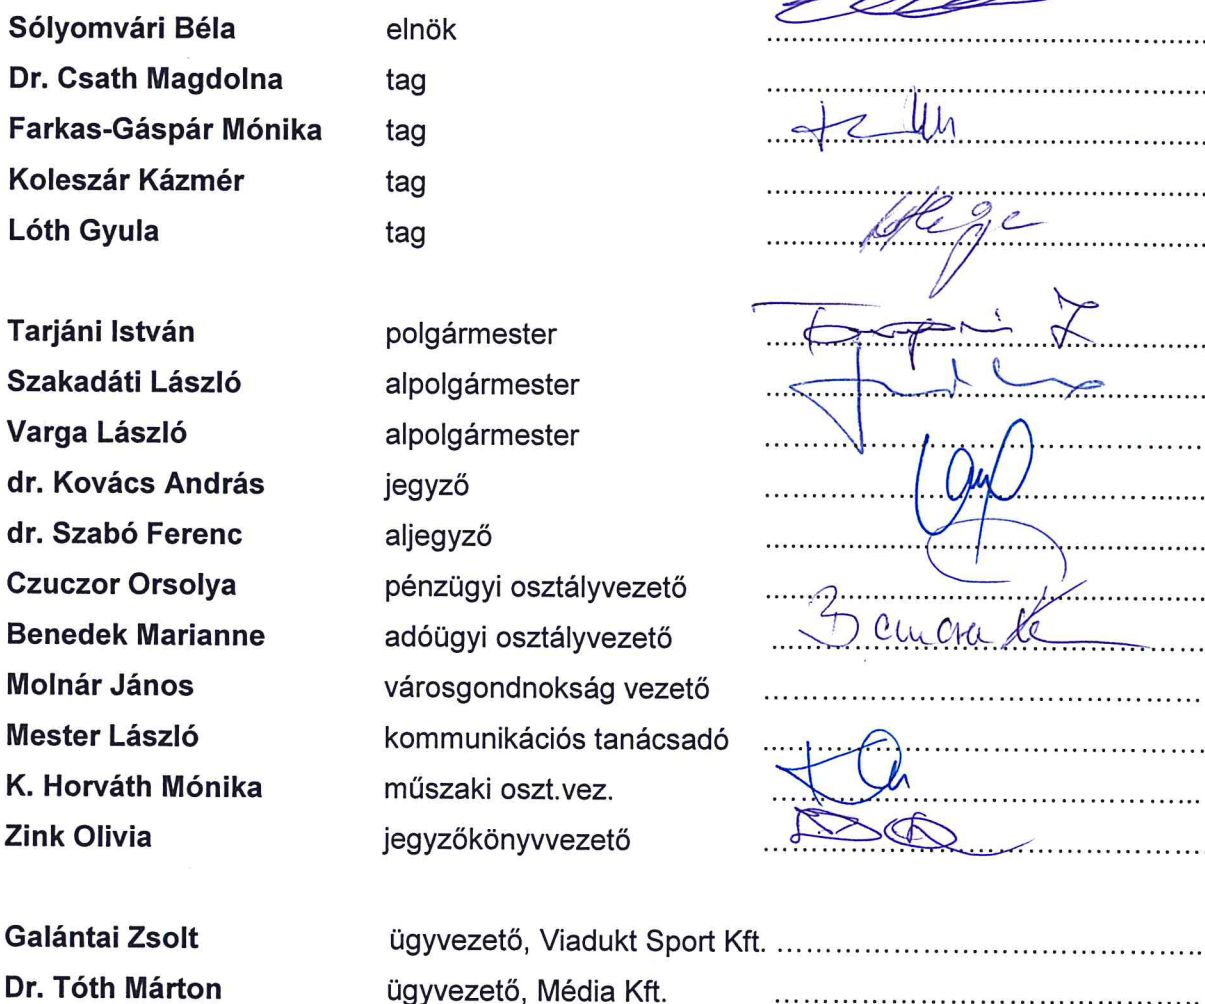 Sólyomvári Béla elnök ........................................
Dr. Csath Magdolna tag ........................................
Farkas-Gáspár Mónika tag ........................................
Koleszár Kázmér tag ........................................
Lóth Gyula tag ........................................
Tarjáni István polgármester ........................................
Szakadáti László alpolgármester ........................................
Varga László alpolgármester ........................................
dr. Kovács András jegyző ........................................
dr. Szabó Ferenc aljegyző ........................................
Czuczor Orsolya pénzügyi osztályvezető ........................................
Benedek Marianne adóügyi osztályvezető ........................................
Molnár János városgondnokság vezető ........................................
Mester László kommunikációs tanácsadó ........................................
K. Horváth Mónika műszaki oszt.vez. ........................................
Zink Olivia jegyzőkönyvvezető ........................................
Galántai Zsolt ügyvezető, Viadukt Sport Kft. ........................................
Dr. Tóth Márton ügyvezető, Média Kft. ........................................